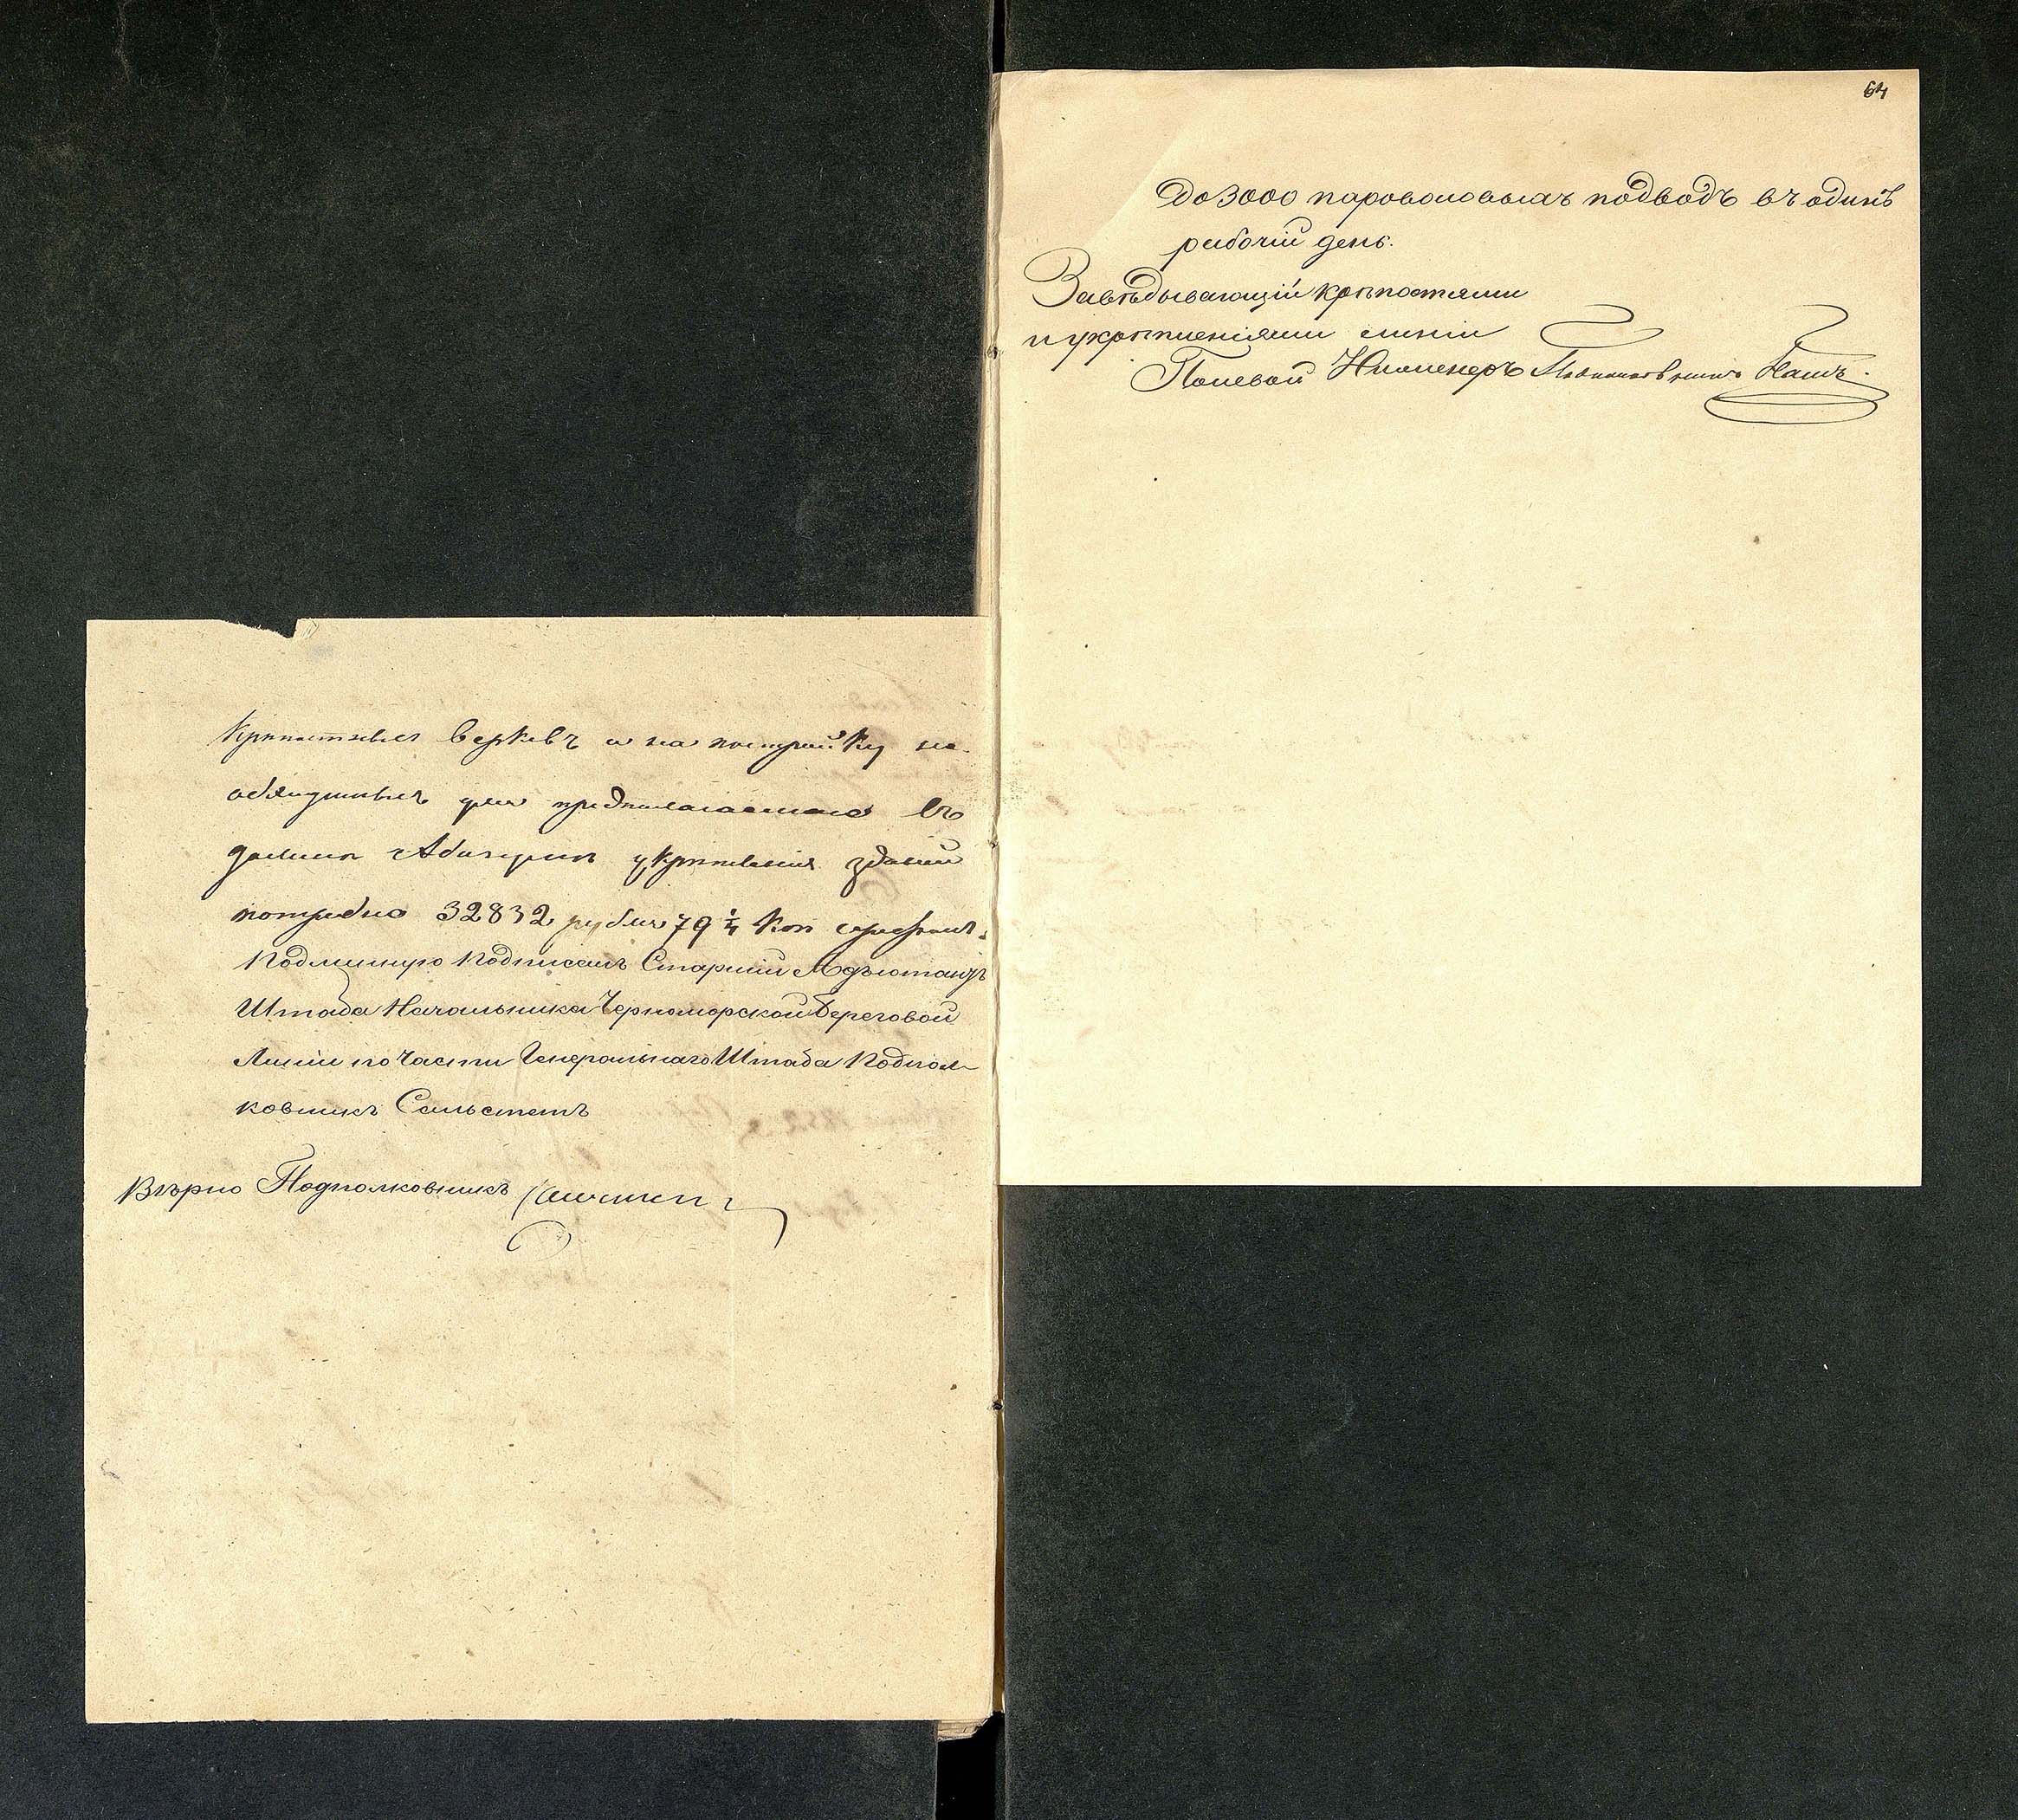 крѣпостныхъ верковъ и на постройку не-
обходимыхъ для предполагаемаго въ
долинѣ Абинъ укрѣпленія зданій
потребно 32832 рубля 79 1/4 коп серебромъ.
Подлинную подписалъ Старшій Адъютантъ
Штаба Начальника Черноморской Береговой
Линіи по части Генеральнаго Штаба Подпол-
ковникъ Сальстетъ
Вѣрно Подполковникъ
64
до 3000 пароволовыхъ подводъ въ одинъ
рабочій день.
Завѣдывающій крѣпостями
и укрѣпленіями линіи
Полевой Инженеръ Подполковникъ